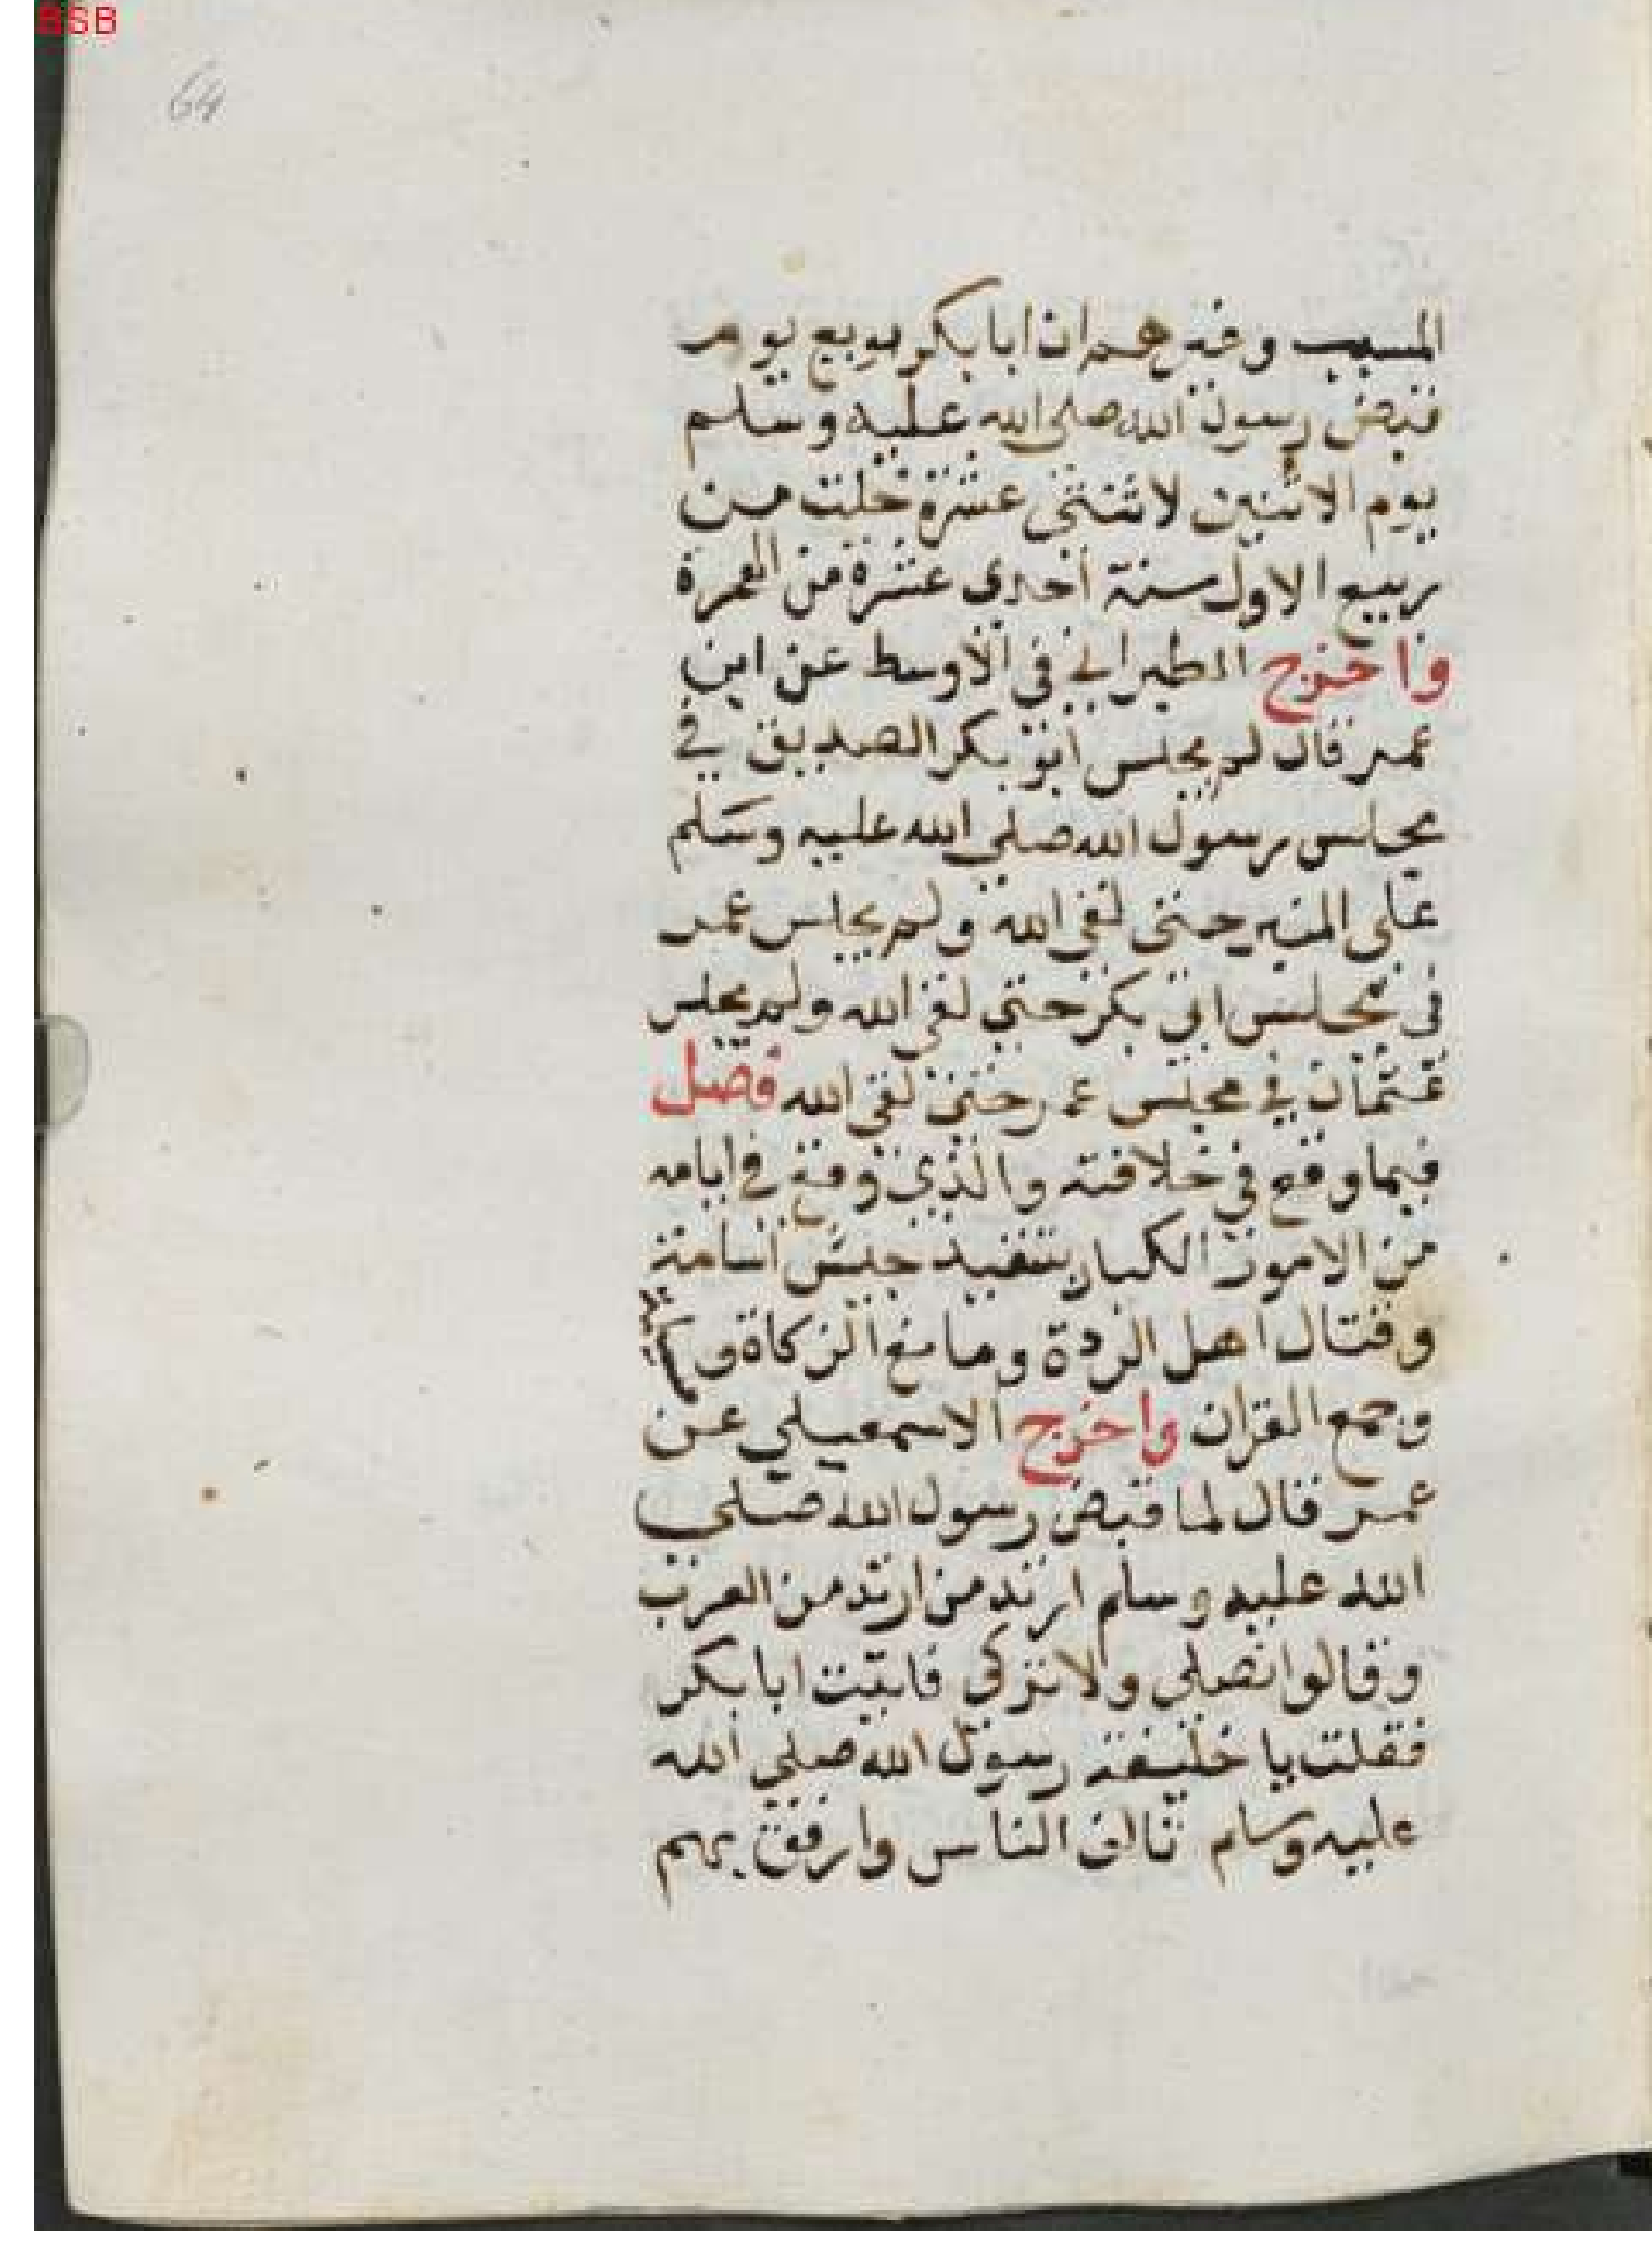 BSB
64
المسيب وغيرهم ان ابا بكر بويع يوم
قبض رسول الله صلى الله عليه وسلم
يوم الاثنين لاثنتى عشرة خلت من
ربيع الاول سنة احدى عشرة من الهجرة
واخرج الطبراني في الاوسط عن ابن
عمر قال لم يجلس ابو بكر الصديق في
مجلس رسول الله صلى الله عليه وسلم
على المنبر حتى لقى الله ولم يجلس عمر
في مجلس ابي بكر حتى لقى الله ولم يجلس
عثمان في مجلس عمر حتى لقى الله فصل
فيما وقع في خلافته والذي وقع في ايامه
من الامور الكبار بتنفيذ جيش اسامة
وقتال اهل الردة ومانع الزكاة و
وجمع القران واخرج الاسمعيلي عن
عمر قال لما قبض رسول الله صلى
الله عليه وسلم ارتد من ارتد من العرب
وقالوا نصلى ولا نزكي فاتيت ابا بكر
فقلت يا خليفة رسول الله صلى الله
عليه وسلم تالف الناس وارفق بهم